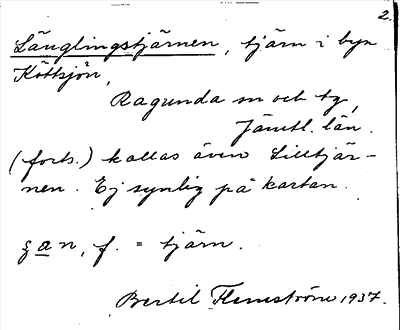 2.
Länglingstjärnen, tjärn i byn
Köttsjön,
Ragunda sn och tg,
Jämtl. län.
(forts.) kallas även Lilltjär-
nen. Ej synlig på kartan.
f. = tjärn.
Bertil Flemström 1937.